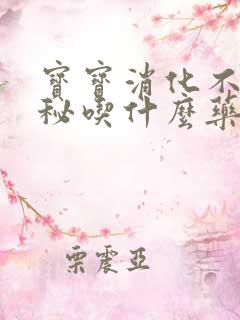 寶寶消化不
秘喫什麼藥
栗震亞